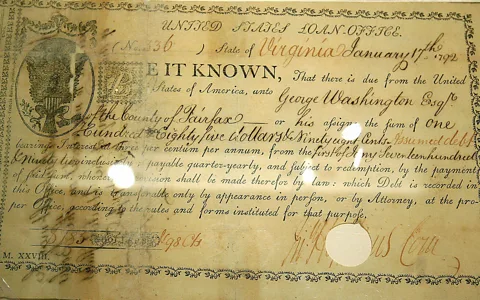 UNITED STATES LOAN-OFFICE.
(No. 336 ) State of Virginia January 17th 1792
BE IT KNOWN, That there is due from the United
States of America, unto George Washington Esqr.
of the County of Fairfax or his assigns the sum of One
Hundred & Eighty five Dollars & Ninety eight Cents. Assumed debt
bearing Interest at three per centum per annum, from the first of Seventeen hundred
& Ninety inclusively payable quarter-yearly, and subject to redemption, by the payment
of said sum, whenever provision shall be made therefor by law: which Debt is recorded in
this Office, and is transferable only by appearance in person, or by Attorney, at the pro-
per Office, according to the rules and forms instituted for that purpose.
98 Cts
Com
M. XXVIII.